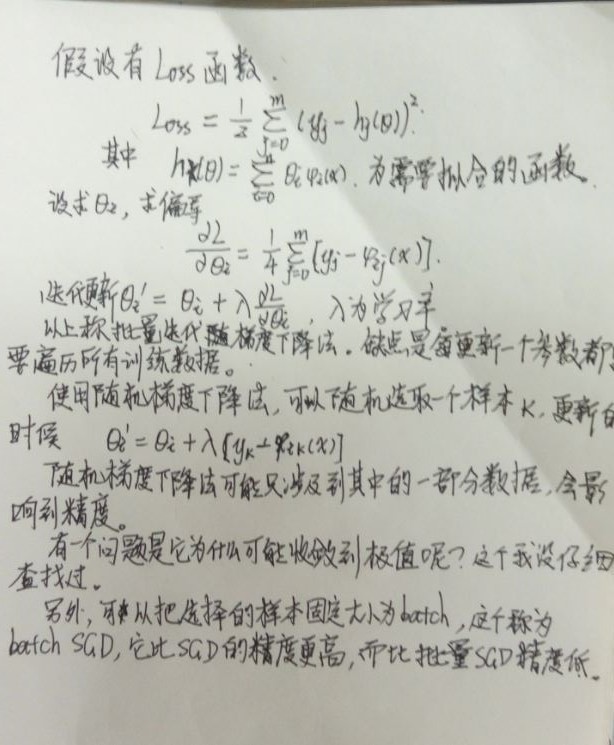 假设有Loss函数.
Loss = 1/2 ∑_{j=0}^{m} (yj - hj(θ))².
其中 h(θ) = ∑_{i=0}^{n} θi φi(x). 为需要拟合的函数。
设求θi, 求偏导
∂L/∂θi = 1/4 ∑_{j=0}^{m} [yj - φij(x)].
迭代更新θi' = θi + λ ∂L/∂θi , λ为学习率
以上称批量迭代梯度下降法。缺点是每更新一个参数都
要遍历所有训练数据。
使用随机梯度下降法, 可以随机选取一个样本K, 更新的
时候 θi' = θi + λ[yK - φiK(x)]
随机梯度下降法可能只涉及到其中的一部分数据, 会影
响到精度。
有一个问题是它为什么可能收敛到极值呢? 这个我没仔细
查找过.
另外, 可以把选择的样本固定大小为batch, 这个称为
batch SGD, 它比SGD的精度更高, 而比批量SGD精度低.